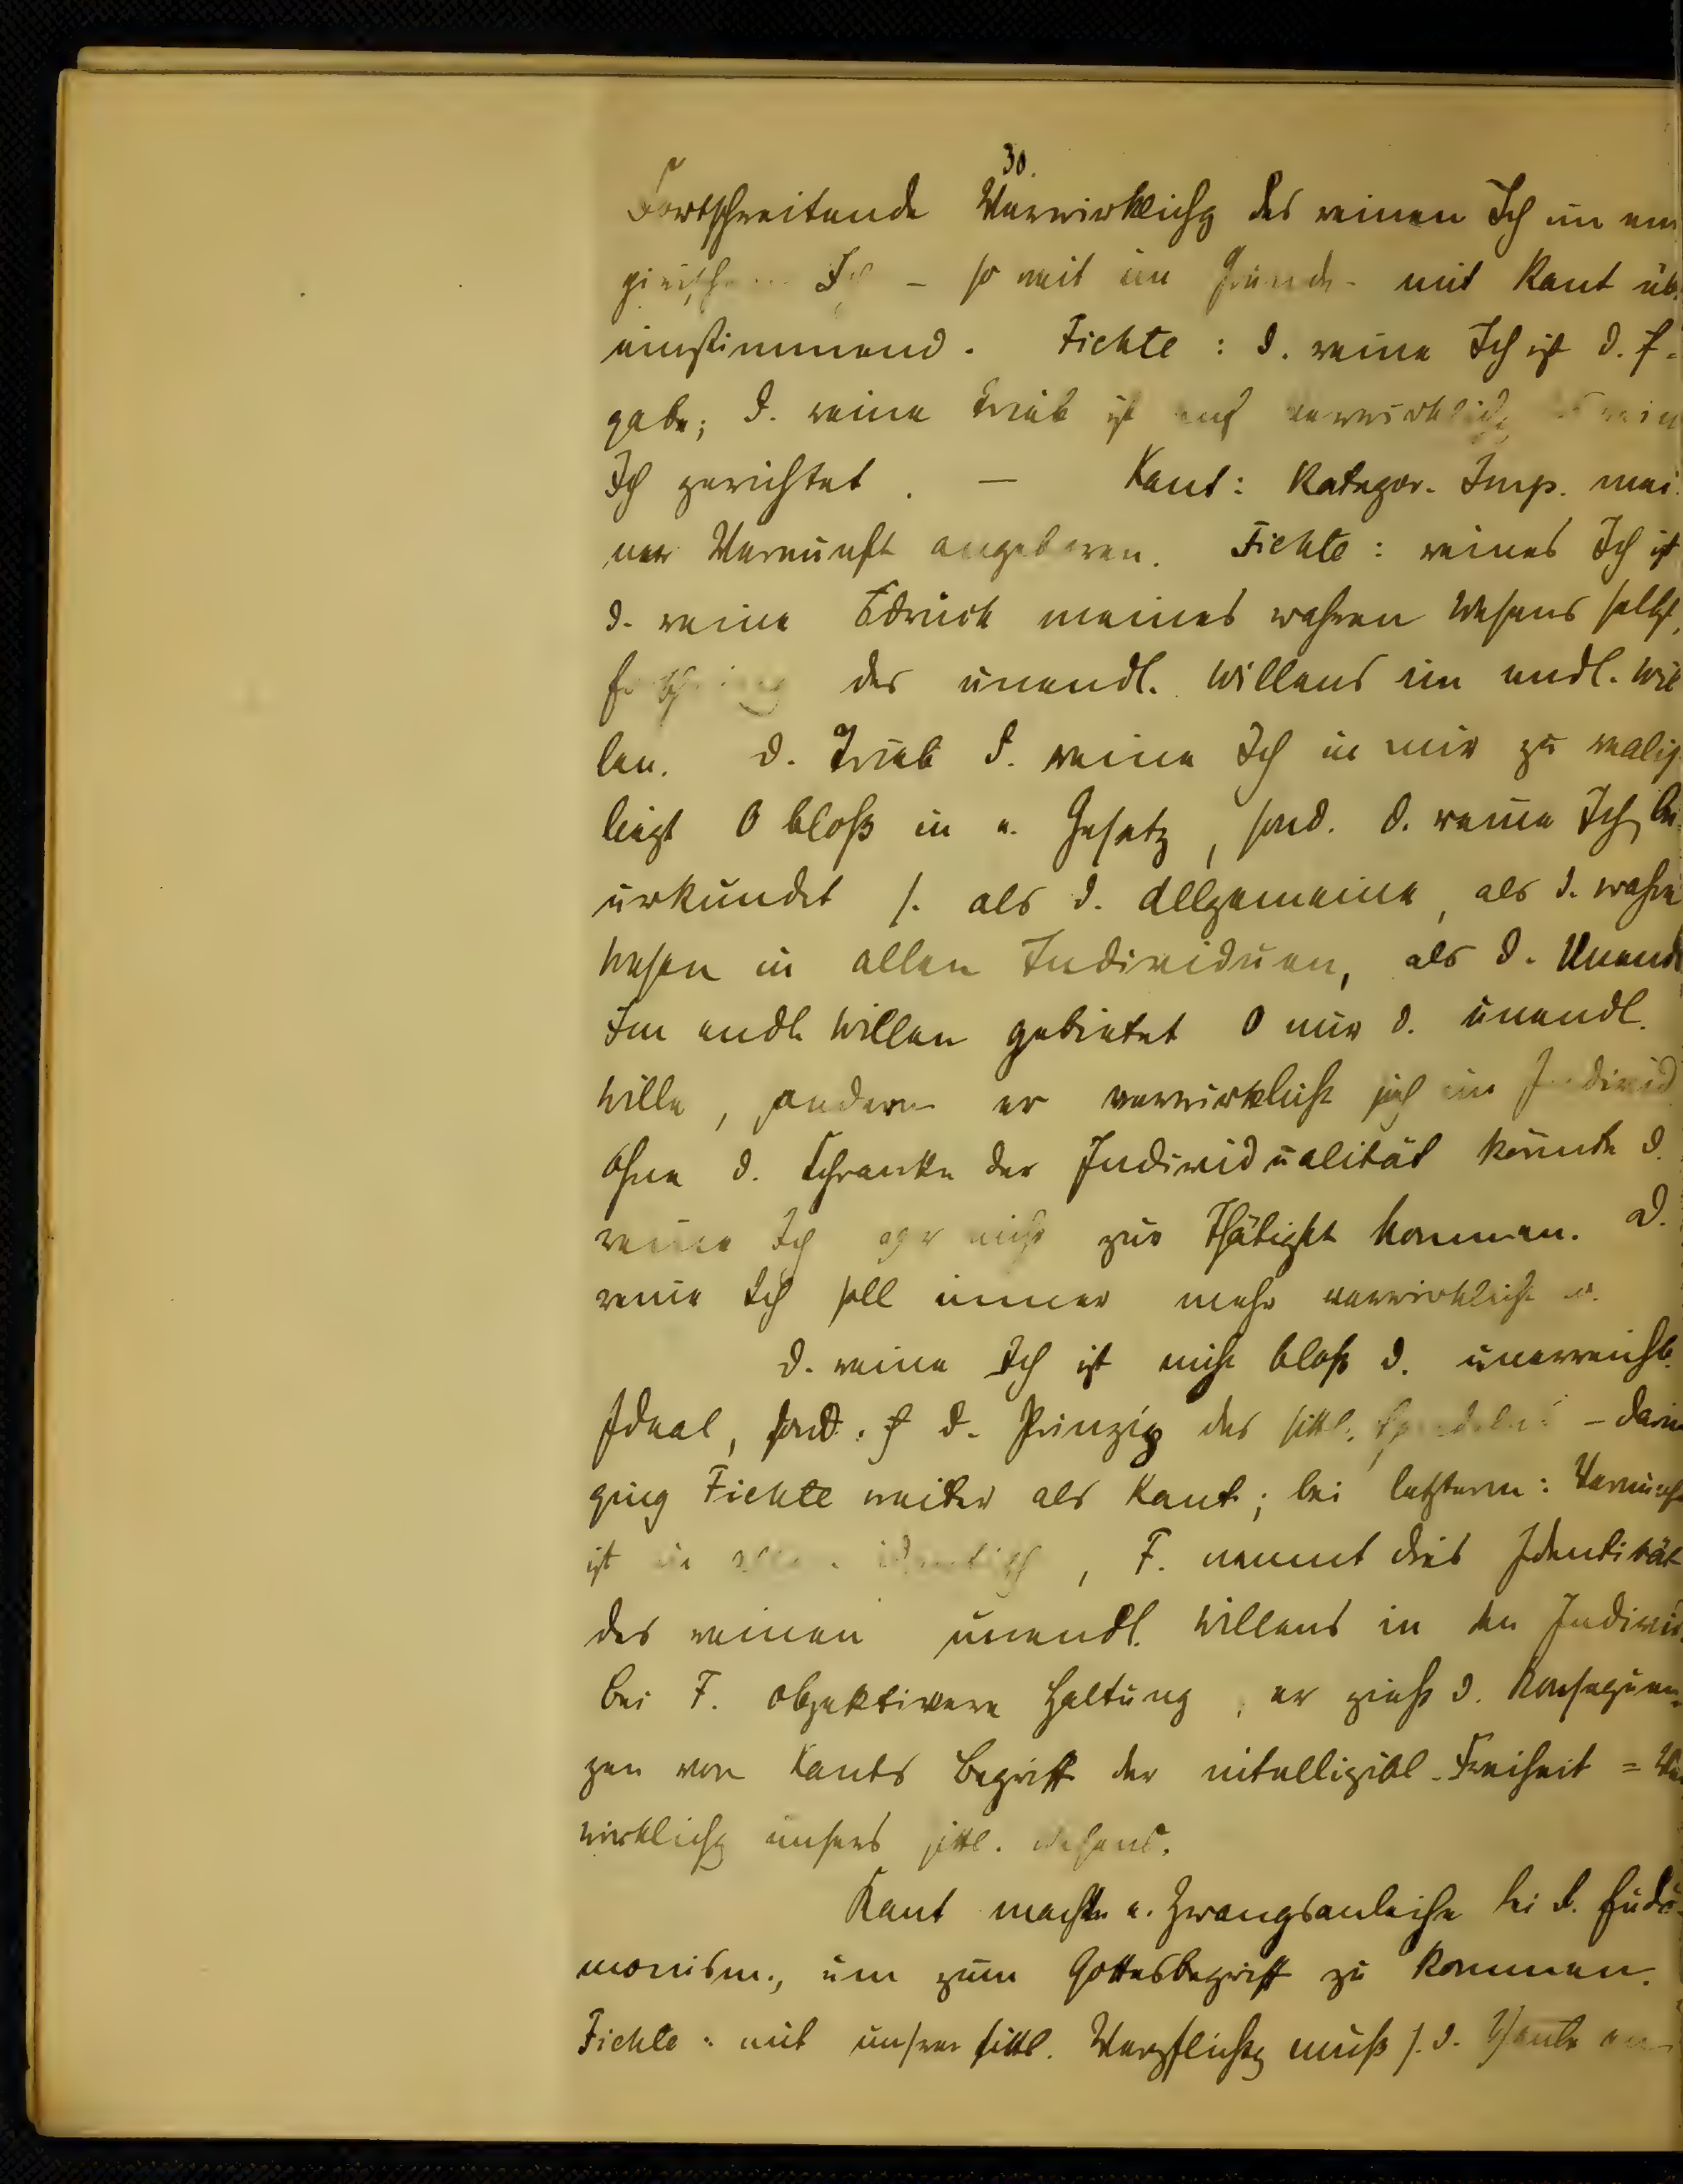 30.
Fortschreitende Verwirklichg des reinen Ich im em
pirischen Ich - so weit im Grunde mit Kant üb.
einstimmend. Fichte: d. reine Ich ist d. f-
gabe; d. reine Trieb ist auf Verwirklichg rein
Ich gerichtet. — Kant: Kategor. Imp. mei
ner Vernunft angeboren. Fichte: reines Ich ist
d. reine meines wahren Wesens selbst,
des unendl. Willens im endl. Wil
len. D. Trieb d. reine Ich in mir zu realis
liegt 0 bloß in e. Gesetz, sond. d. reine Ich be
urkundet s. als d. Allgemeine, als d. wahre
Wesen in allen Individuen, als d. Unend
Im endl. Willen gebietet 0 nur d. unendl.
Wille, sondern er verwirklicht sich im Individ
Ohne d. Schranke der Individualität könnte d.
reine Ich gar nicht zur Thätigkt kommen. D.
reine Ich soll immer mehr verwirklicht w.
D. reine Ich ist nicht bloß d. unerreichb.
Ideal, sond. d. Prinzip des sittl. Handelns - darin
ging Fichte weiter als Kant; bei letzterm: Vernunft
ist in allen identisch, F. nennt dies Identität
des reinen unendl. Willens in den Individ.
Bei F. objektivere Haltung, er zieht d. Konsequen-
zen von Kants Begriff der intelligibl. Freiheit = Ver
wirklichg unsers sittl. Wesens.
Kant machte e. Zwangsanleihe bei d. Eudä-
monism., um zum Gottesbegriff zu kommen.
Fichte: mit unsrer sittl. Verpflichtg muß s. d.